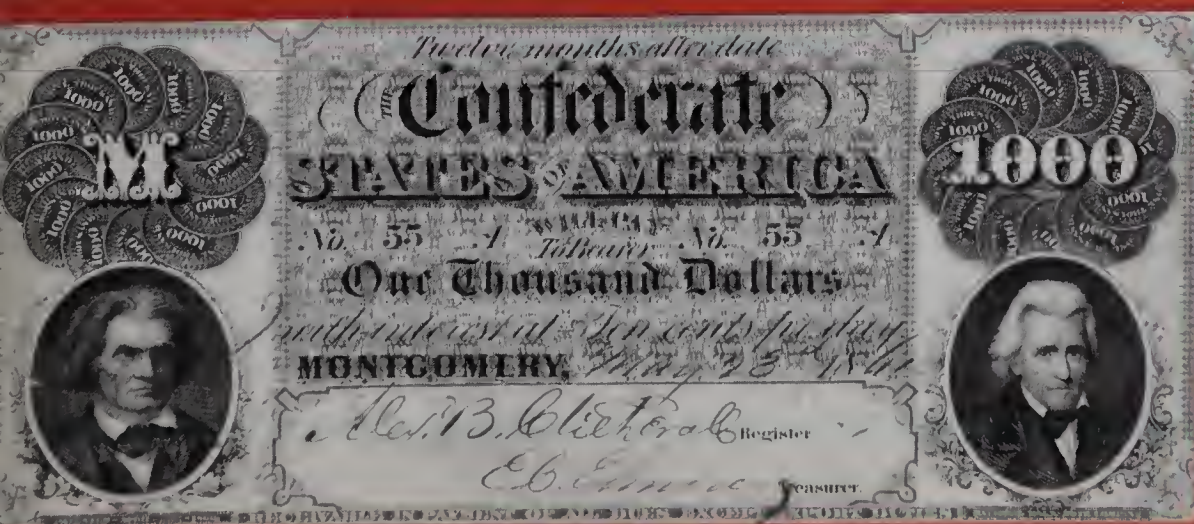 Twelve months after date
THE Confederate
STATES OF AMERICA
M
1000
WILL PAY
No. 55 A To Bearer No. 55 A
One Thousand Dollars
with interest at Ten cents per day
MONTGOMERY, May 28th
Alex. B. Clitherall Register
E. C. Treasurer